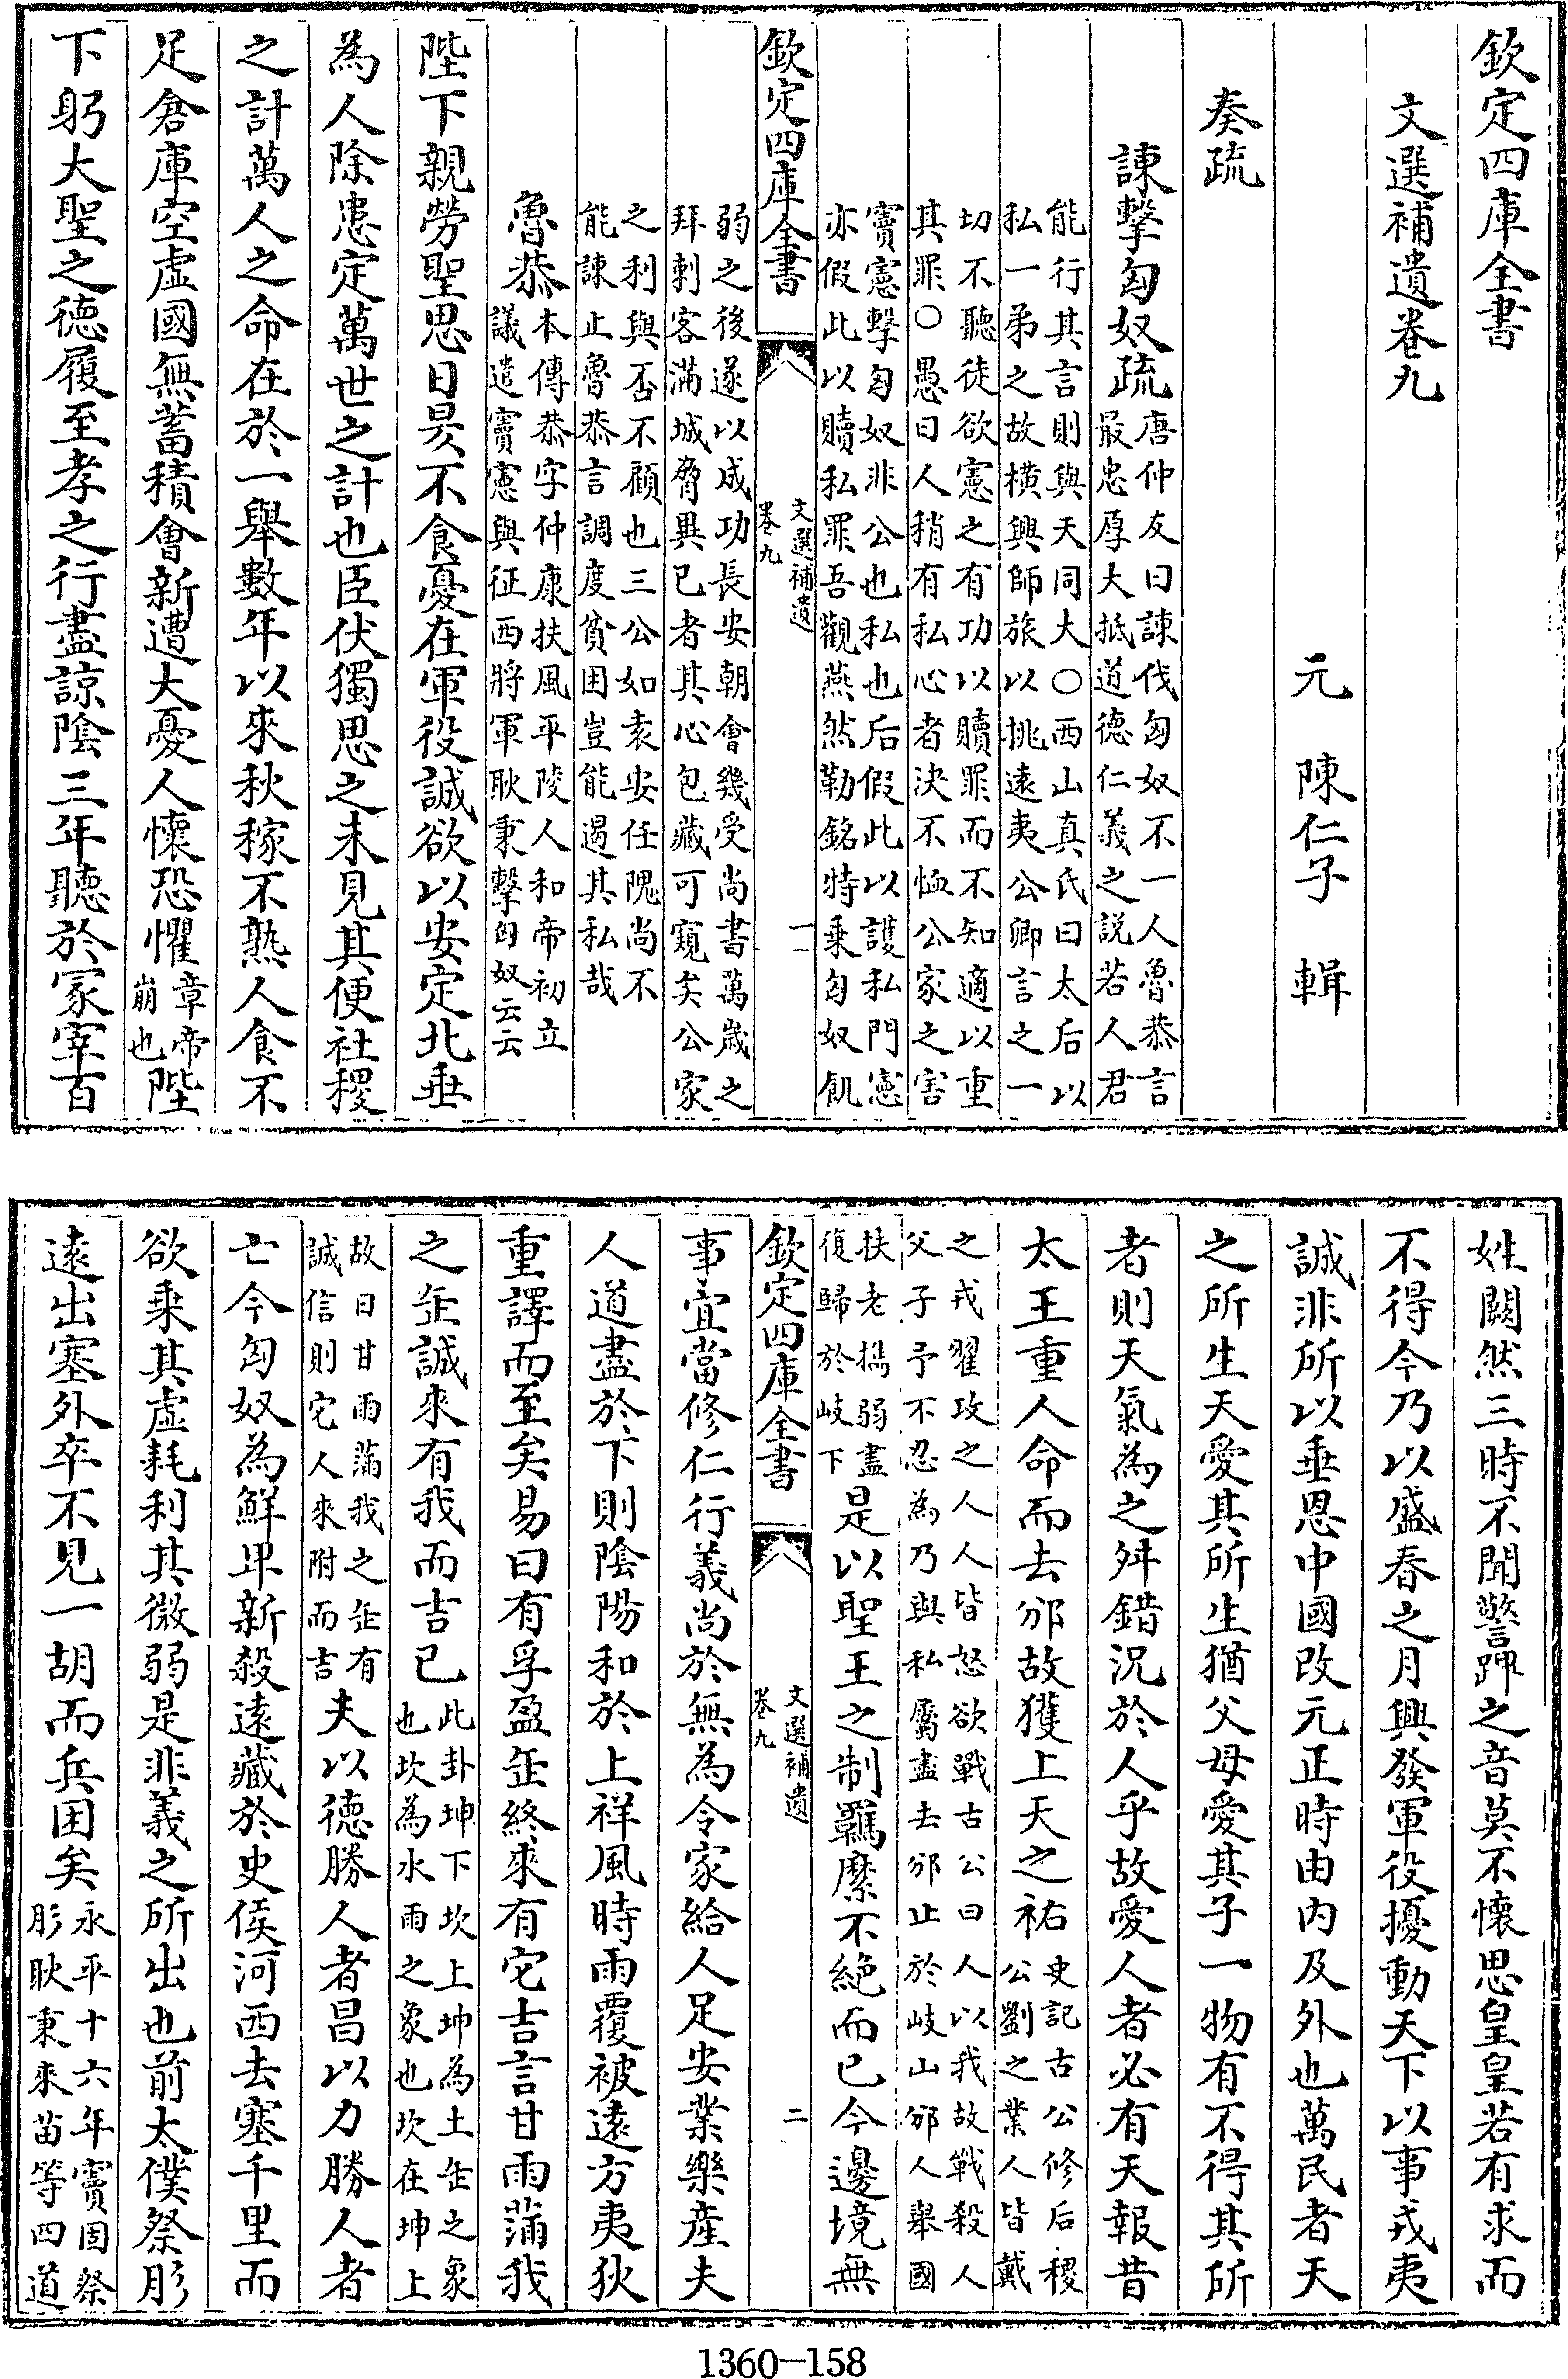 欽定四庫全書
文選補遺卷九
元 陳仁子 輯
奏疏
諫擊匈奴疏
唐仲友曰諫伐匈奴不一人魯恭言
最忠厚大抵道德仁義之説若人君
能行其言則與天同大○西山真氏曰太后以
私一弟之故横興師旅以挑逺夷公卿言之一
切不聽徒欲憲之有功以贖罪而不知適以重
其罪○愚曰人稍有私心者決不恤公家之害
竇憲擊匈奴非公也私也后假此以護私門憲
亦假此以贖私罪吾觀燕然勒銘特乗匈奴飢
欽定四庫全書
文選補遺
卷九
一
弱之後遂以成功長安朝會幾受尚書萬嵗之
拜刺客滿城脅異已者其心包藏可窺矣公家
之利與否不顧也三公如袁安任隗尚不
能諫止魯恭言調度貧困豈能遏其私哉
魯恭
本傳恭字仲康扶風平陵人和帝初立
議遣竇憲與征西將軍耿秉擊匈奴云云
陛下親勞聖思日昃不食憂在軍役誠欲以安定北垂
為人除患定萬世之計也臣伏獨思之未見其便社稷
之計萬人之命在於一舉數年以來秋稼不熟人食不
足倉庫空虚國無蓄積會新遭大憂人懷恐懼
章帝
崩也
陛
下躬大聖之徳履至孝之行盡諒陰三年聽於冢宰百
姓闕然三時不聞警蹕之音莫不懷思皇皇若有求而
不得今乃以盛春之月興發軍役擾動天下以事戎夷
誠非所以垂恩中國改元正時由内及外也萬民者天
之所生天愛其所生猶父母愛其子一物有不得其所
者則天氣為之舛錯況於人乎故愛人者必有天報昔
太王重人命而去邠故獲上天之祐
史記古公修后稷
公劉之業人皆戴
之戎翟攻之人人皆怒欲戰古公曰人以我故戰殺人
父子予不忍為乃與私屬盡去邠止於岐山邠人舉國
扶老攜弱盡
復歸於岐下
是以聖王之制羈縻不絶而已今邊境無
欽定四庫全書
文選補遺
卷九
二
事宜當修仁行義尚於無為令家給人足安業樂産夫
人道盡於下則陰陽和於上祥風時雨覆被逺方夷狄
重譯而至矣易曰有孚盈缶終來有它吉言甘雨滿我
之缶誠來有我而吉已
此卦坤下坎上坤為土缶之象
也坎為水雨之象也坎在坤上
故曰甘雨滿我之缶有
誠信則它人來附而吉
夫以德勝人者昌以力勝人者
亡今匈奴為鮮卑新殺逺藏於史侯河西去塞千里而
欲乗其虚耗利其微弱是非義之所出也前太僕祭肜
逺出塞外卒不見一胡而兵困矣
永平十六年竇固祭
肜耿秉來苗等四道
1360—158